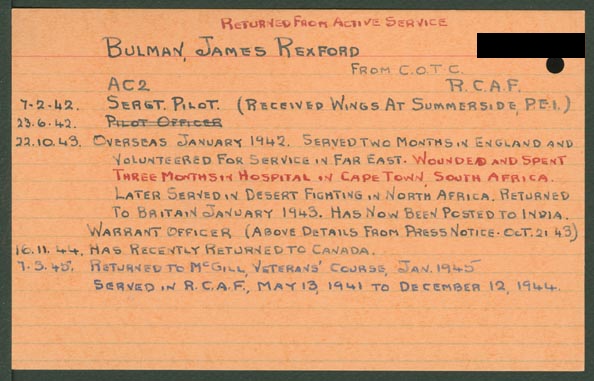 RETURNED FROM ACTIVE SERVICE
BULMAN, JAMES REXFORD
FROM C.O.T.C.
AC2 R.C.A.F.
7-2-42. SERGT. PILOT. (RECEIVED WINGS AT SUMMERSIDE, P.E.I.)
23.6.42. PILOT OFFICER
22.10.43. OVERSEAS JANUARY 1942. SERVED TWO MONTHS IN ENGLAND AND
VOLUNTEERED FOR SERVICE IN FAR EAST. WOUNDED AND SPENT
THREE MONTHS IN HOSPITAL IN CAPE TOWN, SOUTH AFRICA.
LATER SERVED IN DESERT FIGHTING IN NORTH AFRICA. RETURNED
TO BRITAIN JANUARY 1943. HAS NOW BEEN POSTED TO INDIA.
WARRANT OFFICER (ABOVE DETAILS FROM PRESS NOTICE. OCT. 21 43)
16.11.44. HAS RECENTLY RETURNED TO CANADA.
7-3-45. RETURNED TO MCGILL, VETERANS' COURSE, JAN. 1945
SERVED IN R.C.A.F., MAY 13, 1941 TO DECEMBER 12, 1944.